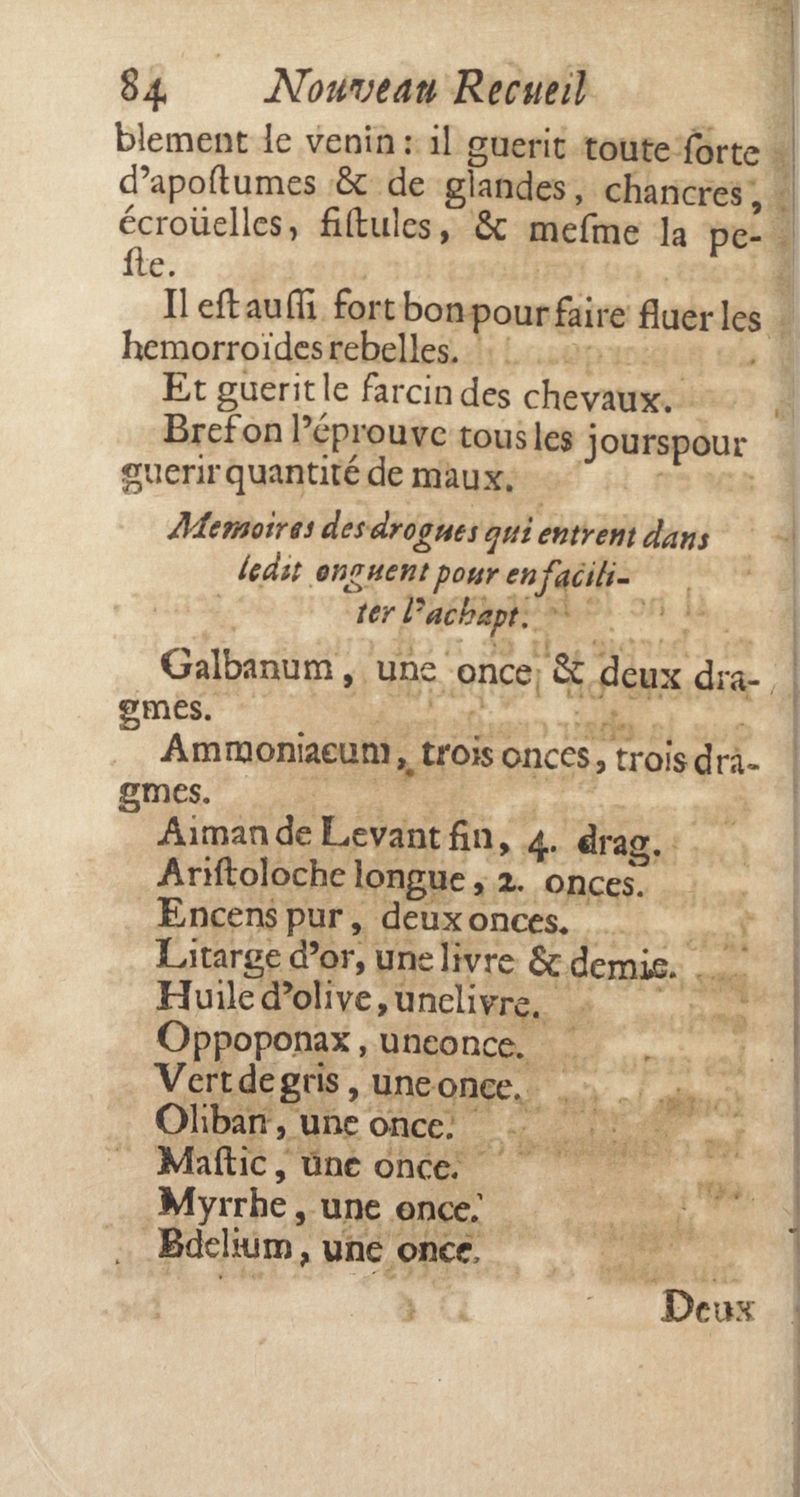 84 Nouveau Recueil
blement le venin : il guerit toute ſorte
d’apoſtumes & de glandes, chancres,
écroüelles, fiſtules, & meſme la pe-
ſte.
Il eſt auſſi fort bon pour faire fluer les
hemorroïdes rebelles.
Et guerit le farcin des chevaux.
Bref on l’éprouve tous les jours pour
guerir quantité de maux.
Memoires des drogues qui entrent dans
ledit onguent pour en facili-
ter l’achapt.
Galbanum, une once & deux dra-
gmes.
Ammoniacum, trois onces, trois dra-
gmes.
Aiman de Levant fin, 4. drag.
Ariſtoloche longue, 2. onces.
Encens pur, deux onces.
Litarge d’or, une livre & demie.
Huile d’olive, une livre.
Oppoponax, une once.
Vert de gris, une once.
Oliban, une once.
Maſtic, une once.
Myrrhe, une once.
Bdelium, une once.
Deux